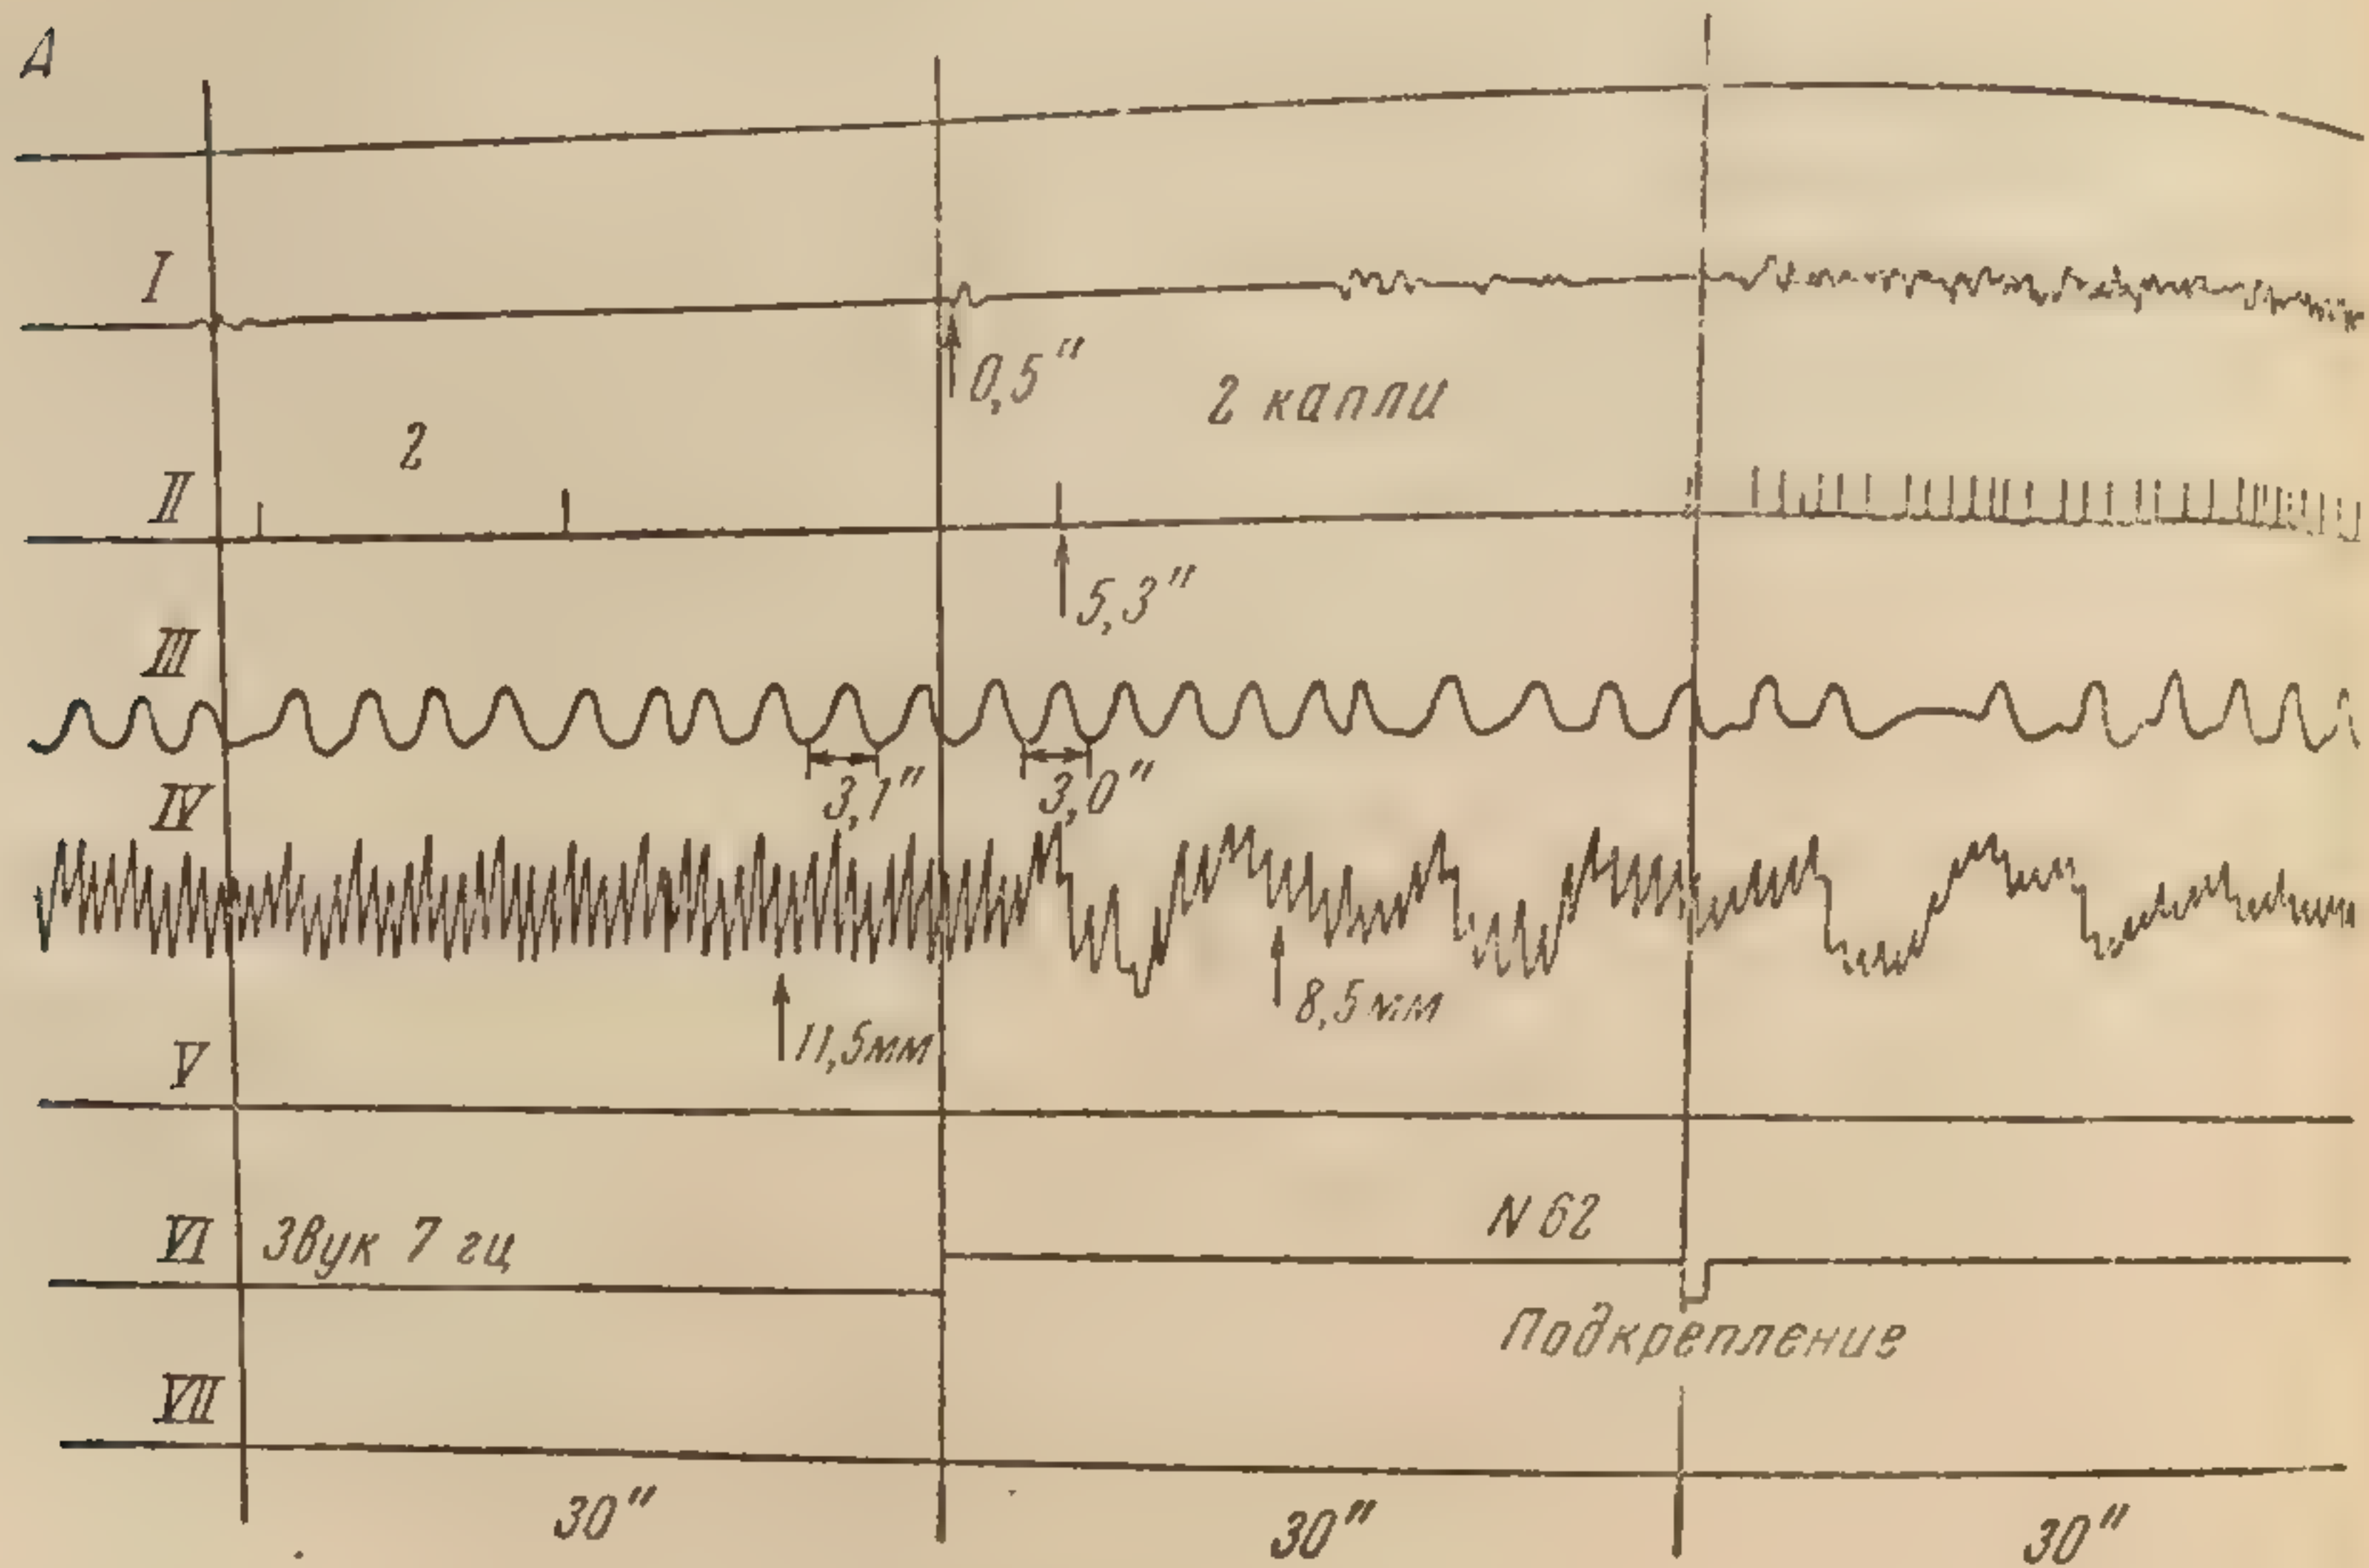 А
I
0,5"
2 капли
2
II
5,3"
III
3,1"
3,0"
IV
8,5мм
11,5мм
V
N 62
VI Звук 7 гц
Подкрепление
VII
30"
30"
30"